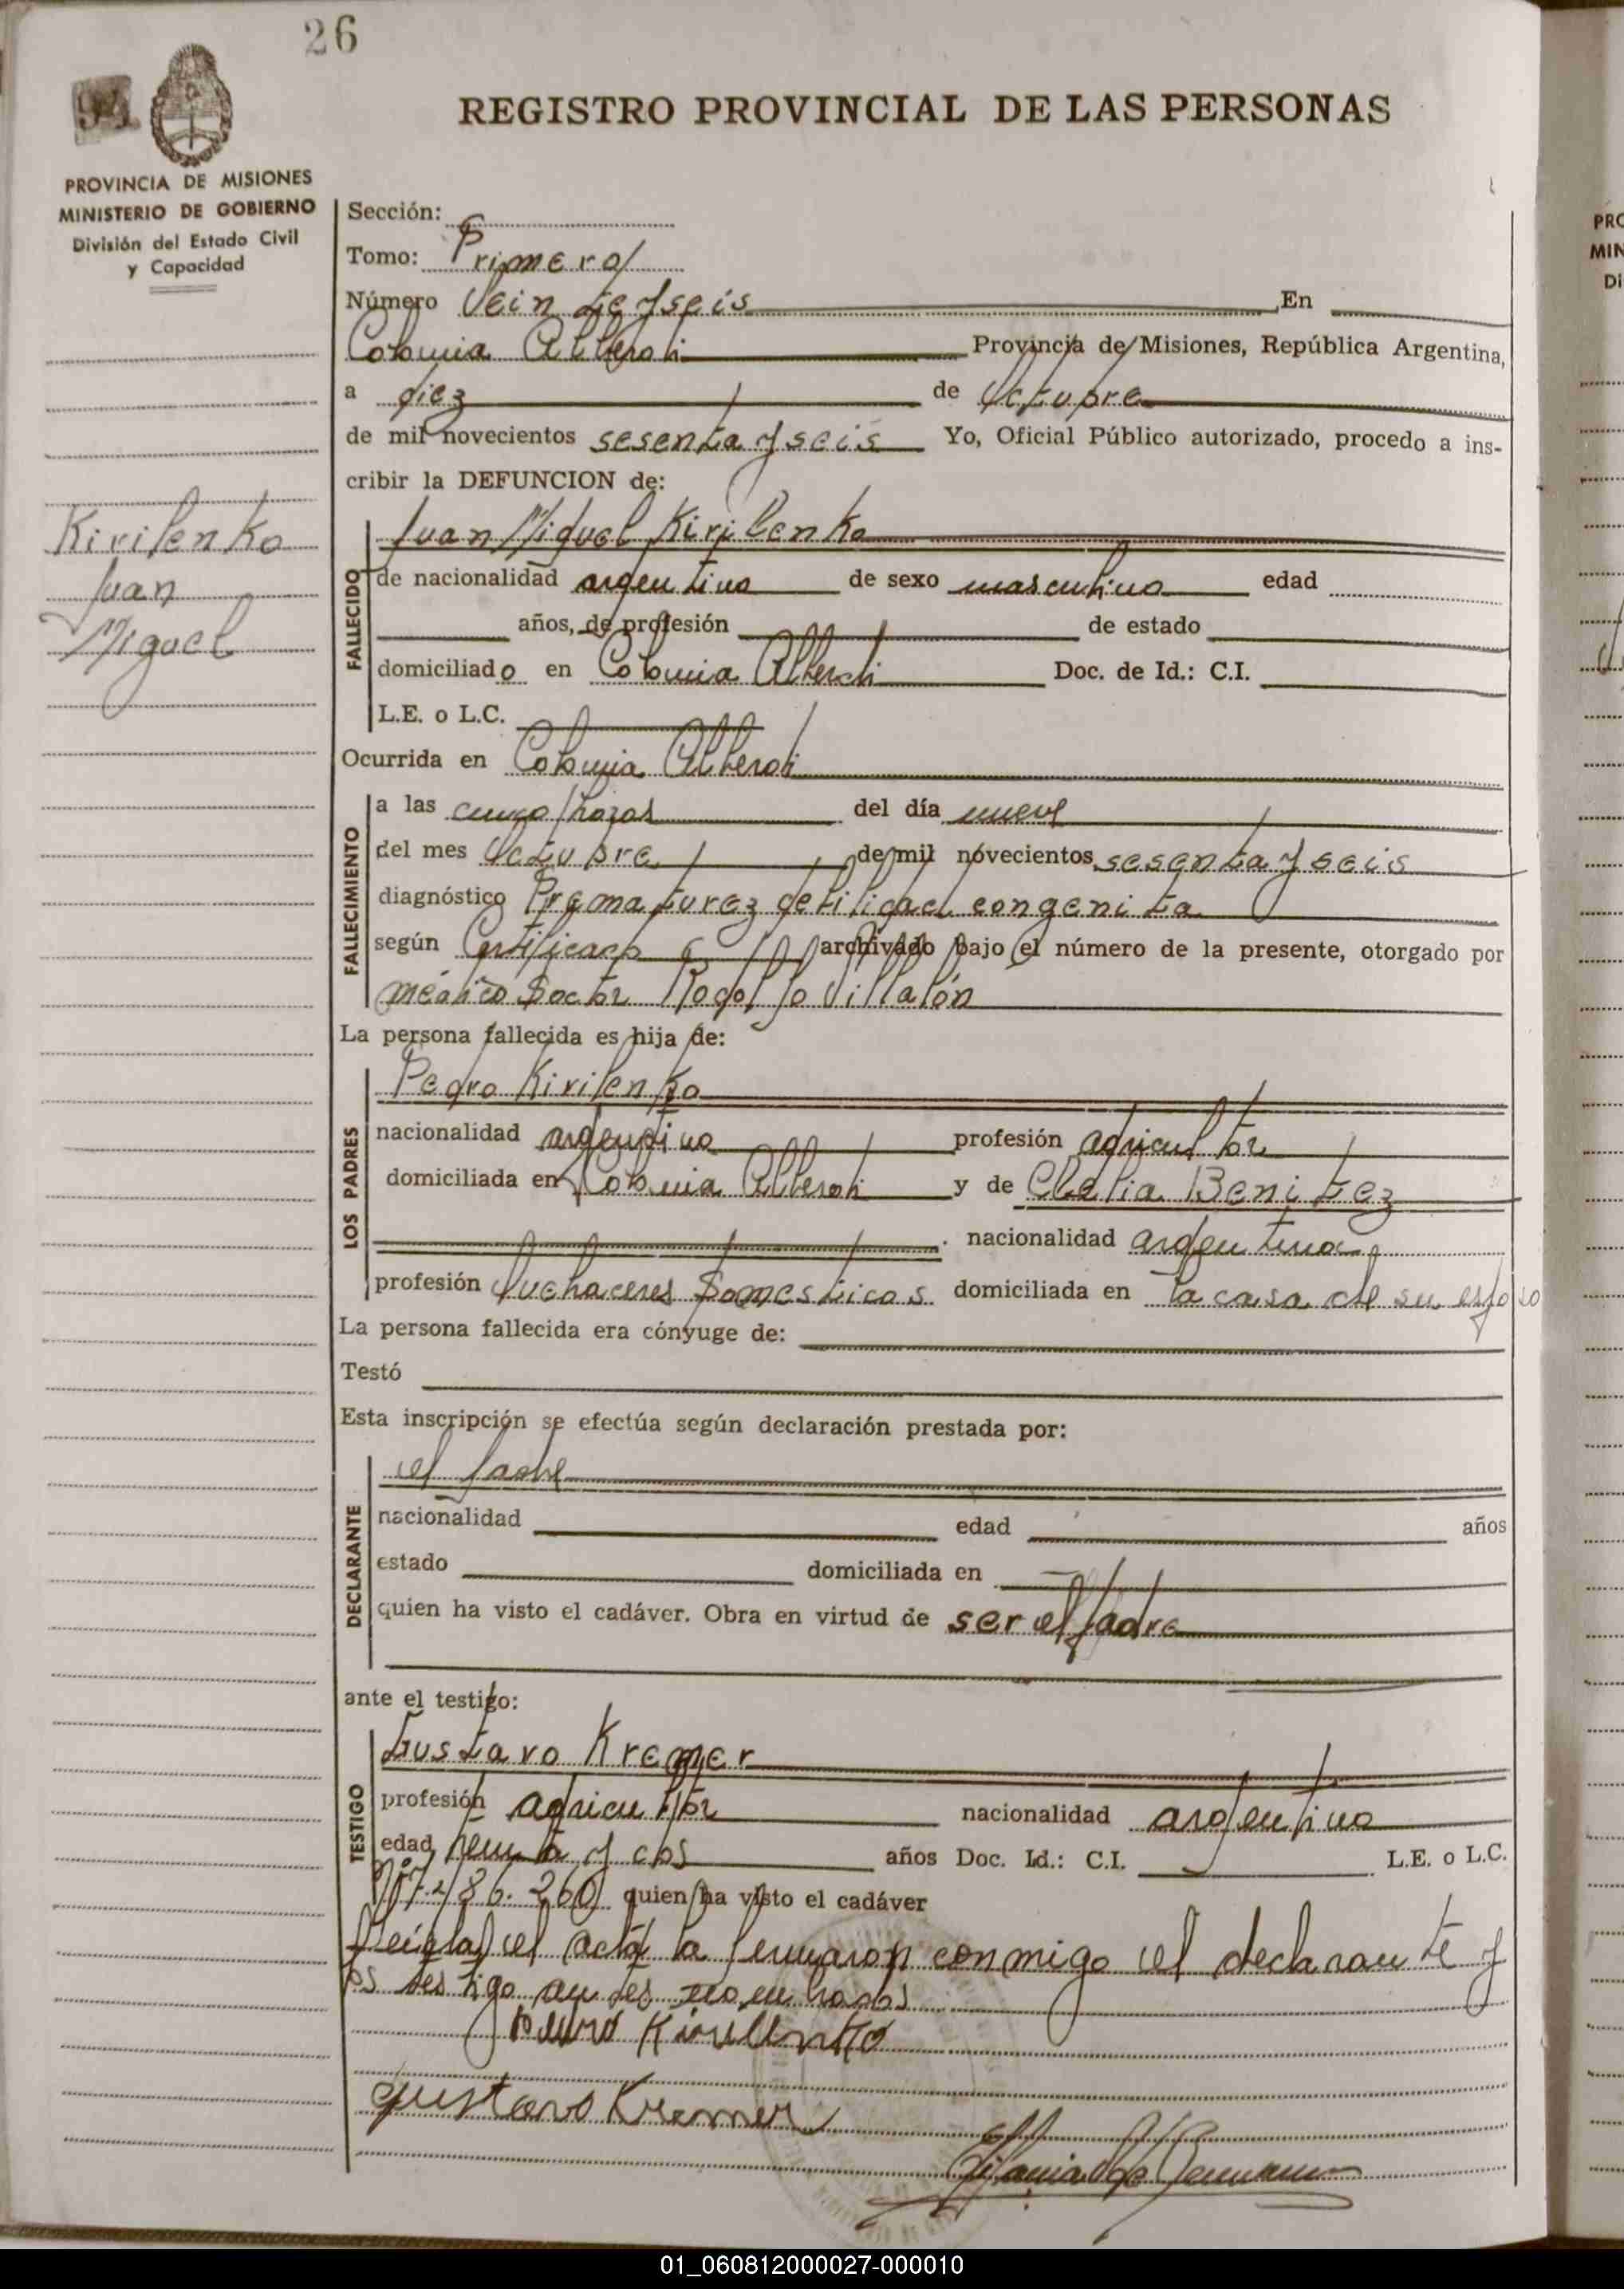 26
94
REGISTRO PROVINCIAL DE LAS PERSONAS
PROVINCIA DE MISIONES
MINISTERIO DE GOBIERNO
División del Estado Civil
y Capacidad
Sección:
Tomo: Primero
Número Veintey seis En
Colonia Alberdi Provincia de Misiones, República Argentina,
a diez de Octubre
de mil novecientos sesenta y seis Yo, Oficial Público autorizado, procedo a ins-
cribir la DEFUNCION de:
Kirilenko
Juan
Miguel
FALLECIDO
Juan Miguel Kirilenko
de nacionalidad argentino de sexo masculino edad
años, de profesión de estado
domiciliado en Colonia Alberdi Doc. de Id.: C.I.
L.E. o L.C.
Ocurrida en Colonia Alberdi
FALLECIMIENTO
a las cinco horas del día nueve
del mes Octubre de mil novecientos sesenta y seis
diagnóstico Prematurez debilidad congenita
según Certificado archivado bajo el número de la presente, otorgado por
médico Doctor Rodolfo Villalón
La persona fallecida es hija de:
LOS PADRES
Pedro Kirilenko
nacionalidad argentino profesión agricultor
domiciliada en Colonia Alberdi y de Clelia Benitez
nacionalidad argentina
profesión Quehaceres Domesticos domiciliada en la casa del su esposo
La persona fallecida era cónyuge de:
Testó
Esta inscripción se efectúa según declaración prestada por:
DECLARANTE
el padre
nacionalidad edad años
estado domiciliada en
quien ha visto el cadáver. Obra en virtud de ser el padre
ante el testigo:
TESTIGO
Gustavo Kremer
profesión agricultor nacionalidad argentino
edad treinta y dos años Doc. Id.: C.I. L.E. o L.C.
quien ha visto el cadáver
Leída el acta la firmaron conmigo el declarante y
testigo antes nombrados
Pedro Kirilenko
Gustavo Kremer
PRO
MIN
Di
01_060812000027-000010